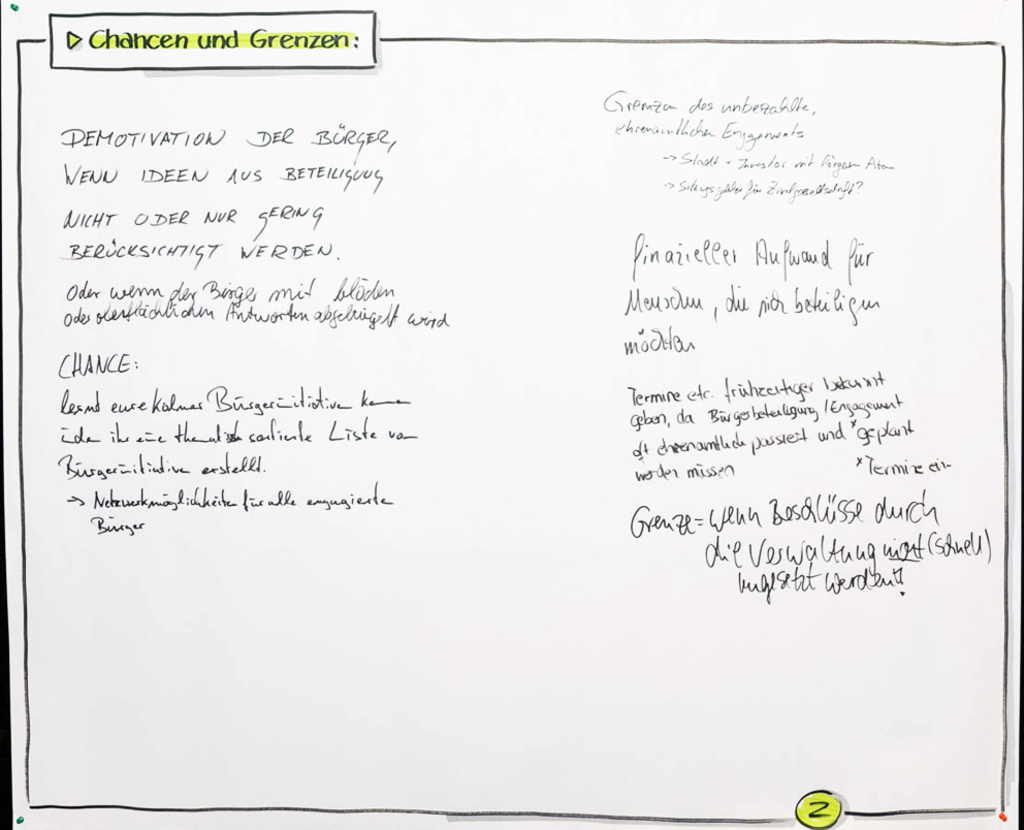 ▷ Chancen und Grenzen:
DEMOTIVATION DER BÜRGER,
WENN IDEEN AUS BETEILIGUNG
NICHT ODER NUR GERING
BERÜCKSICHTIGT WERDEN.
Oder wenn der Bürger mit blöden
oder oberflächlichen Antworten abgebügelt wird
CHANCE:
lernt eure Kölner Bürgerinitiativen kennen
indem ihr eine thematisch sortierte Liste von
Bürgerinitiativen erstellt.
→ Netzwerkmöglichkeiten für alle engagierten
Bürger
Grenzen des unbezahlten,
ehrenamtlichen Engagements
→ Stadt + Investor mit längerem Atem
→ Sitzungsgelder für Zivilgesellschaft?
finanzieller Aufwand für
Menschen, die sich beteiligen
möchten
Termine etc. frühzeitiger bekannt
geben, da Bürgerbeteiligung/Engagement
oft ehrenamtlich passiert und *geplant
werden müssen
*Termine ein-
Grenze = wenn Beschlüsse durch
die Verwaltung nicht (schnell)
umgesetzt werden!
2